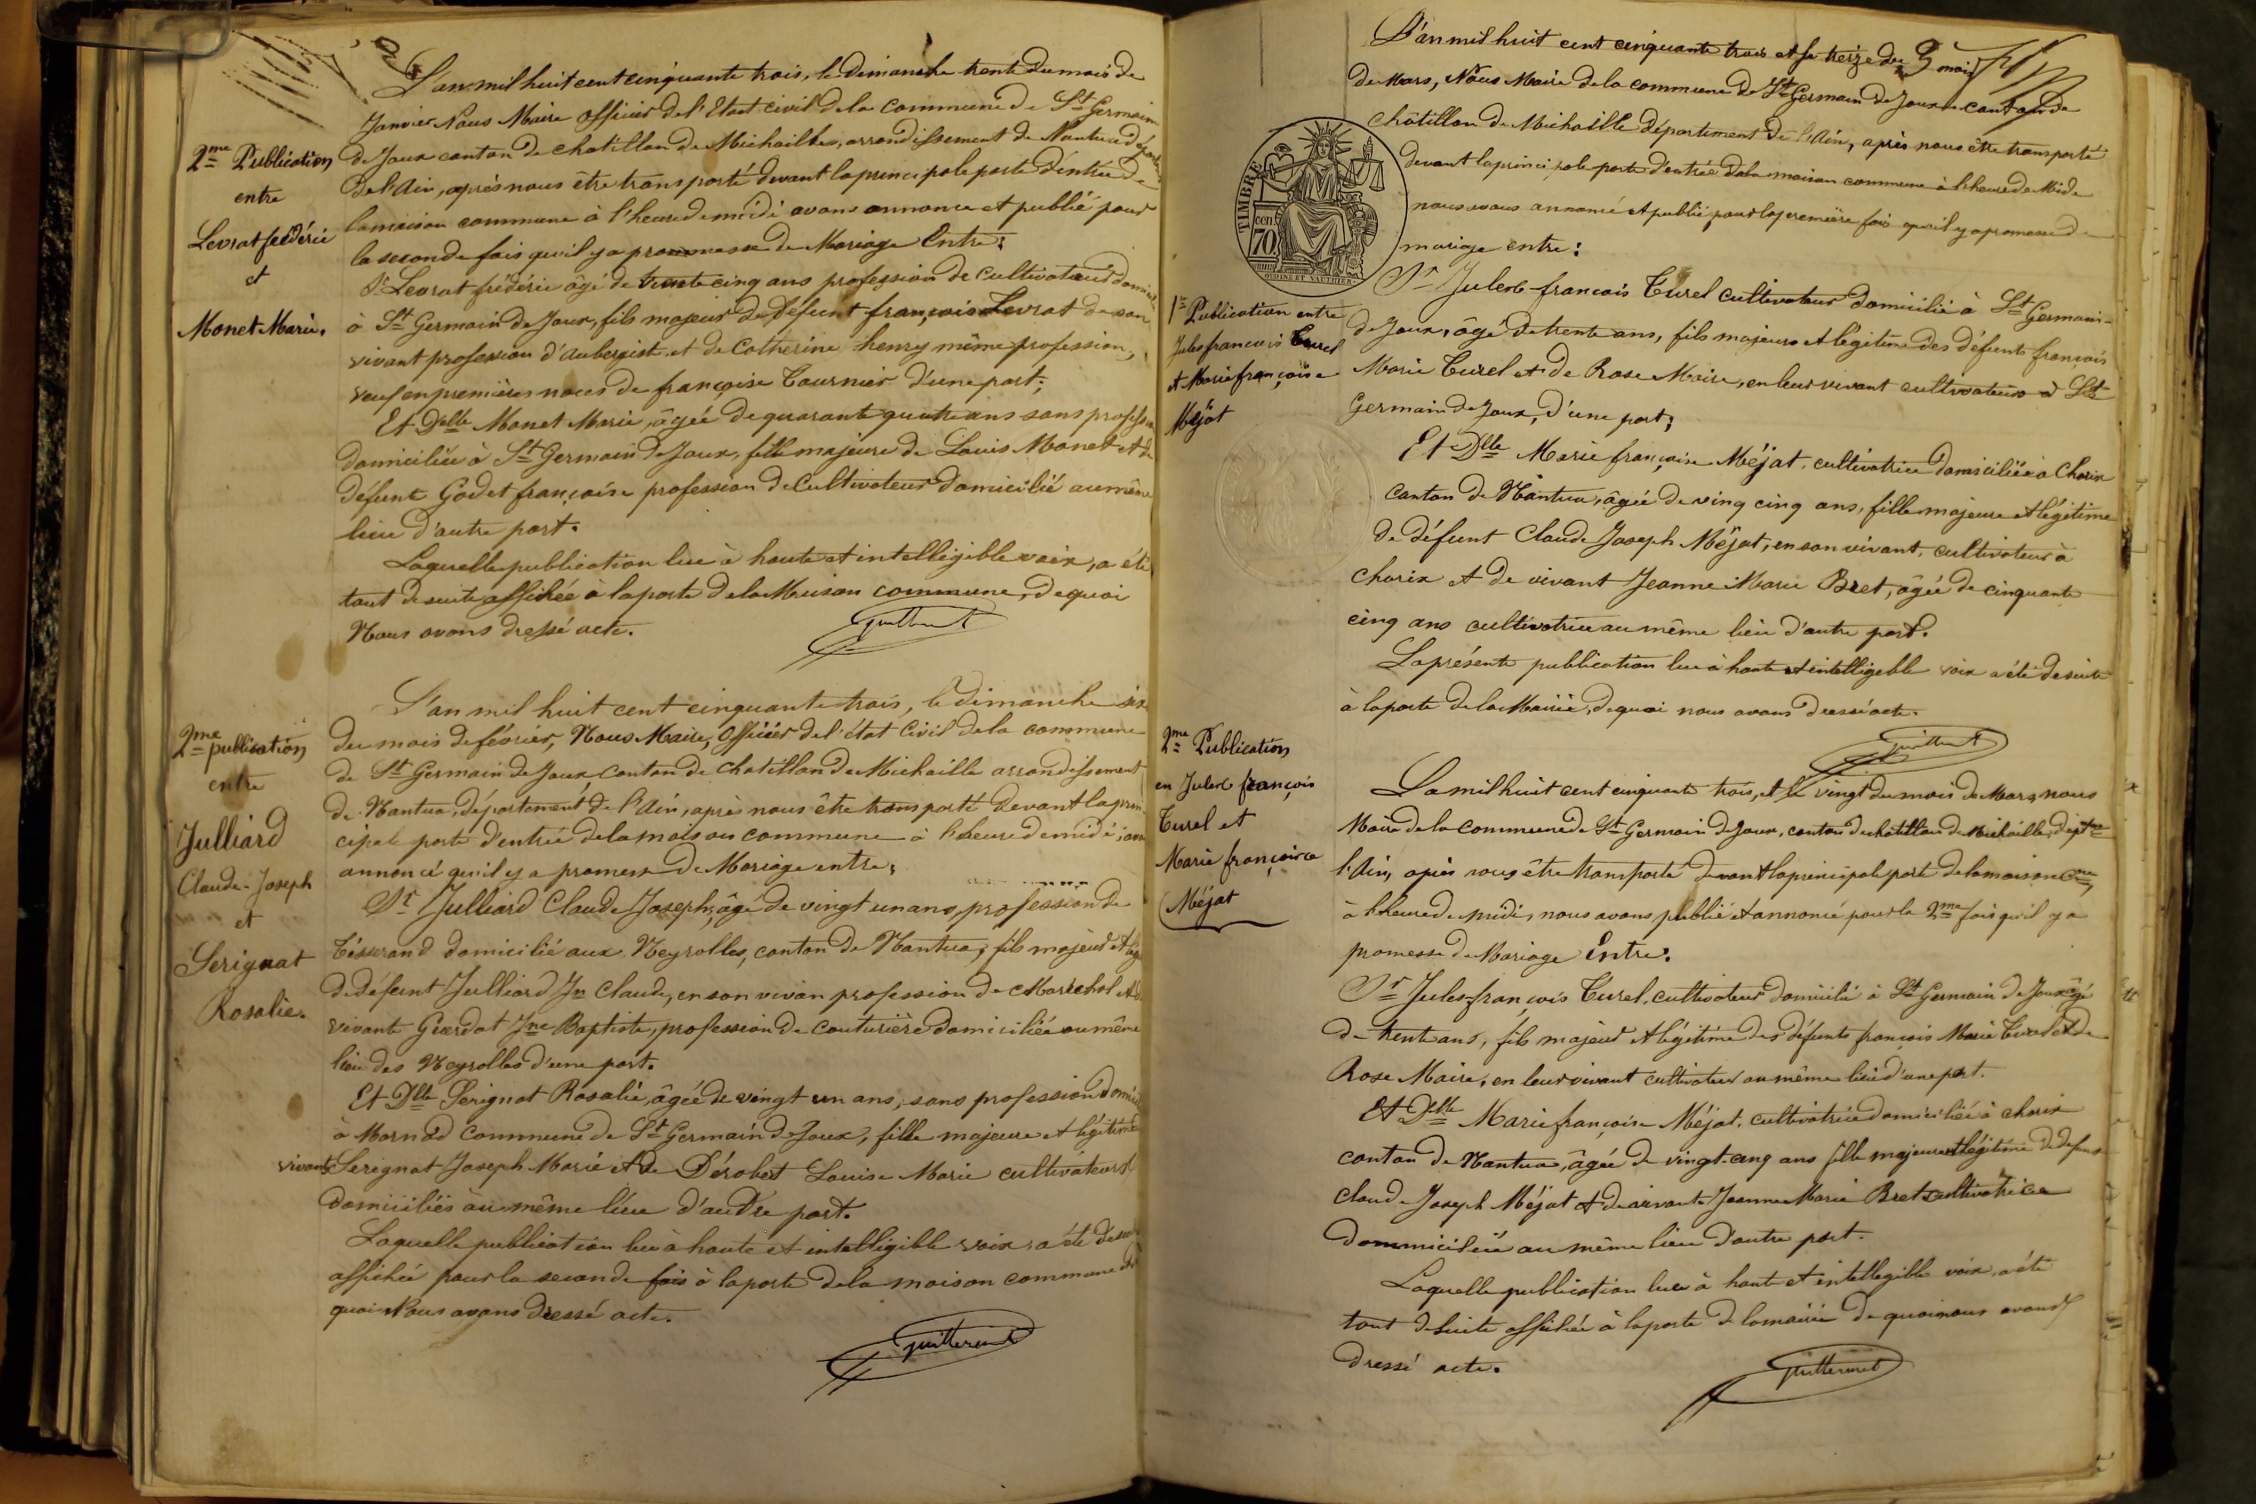 2
L'an mil huit cent cinquante trois, le dimanche trente du mois de
Janvier Nous Maire officier de l'Etat civil de la commune de St Germain
de Joux canton de chatillon de Michailles, arrondissement de Nantua
De l'Ain, après nous être transporté devant la principale porte d'entrée de
la maison commune à l'heure de midi avons annoncé et publié pour
la seconde fois qu'il y a promesse de Mariage Entre:
Sr Levrat frédéric âgé de trente cinq ans profession de cultivateur
à St Germain de Joux, fils majeur de défunt françois Levrat de son
vivant profession d'aubergiste et de Catherine henry même profession,
veuf en premières noces de françoise Tournier d'une part;
Et Delle Monet Marie, âgée de quarante quatre ans sans profession
domiciliée à St Germain de Joux, fille majeure de Louis Monet et de
défunt Godet françoise profession de cultivateur domicilié au même
lieu d'autre part.
Laquelle publication lue à haute et intelligible voix, a été
tout de suite affichée à la porte de la Maison commune, de quoi
Nous avons dressé acte.
2me Publication
entre
Levrat frédéric
et
Monet Marie.
L'an mil huit cent cinquante trois, le dimanche six
du mois de février, Nous Maire, Officier de l'état Civil de la commune
de St Germain de Joux canton de chatillon de Michaille arrondissement
de Nantua, département de l'Ain, après nous être transporté devant la prin
cipale porte d'entrée de la maison commune à l'heure de midi
annoncé qu'il y a promesse de Mariage entre;
Sr Julliard Claude Joseph, âgé de vingt un ans, profession de
Tisserand domicilié aux Neyrolles, canton de Nantua, fils majeur et
de défunt Julliard Jn Claude, en son vivan profession de Maréchal
vivante Jne Baptiste, profession de couturière domiciliée au même
lieu des Neyrolles d'une part.
Et Delle Serignat Rosalie, âgée de vingt un ans, sans profession
à Marnod commune de St Germain de Joux, fille majeure et légitime
vivants Serignat Joseph Marie et de Dérobert Louise Marie cultivateurs
domiciliés au même lieu d'autre part.
Laquelle publication lue à haute et intelligible voix a été
affichée pour la seconde fois à la porte de la maison commune
quoi Nous avons dressé acte.
2me publication
entre
Julliard
Claude-Joseph
et
Serignat
Rosalie.
Guillermet
L'an mil huit cent cinquante trois et le treize du 3 mois
de Mars, Nous Maire de la commune de St Germain de Joux canton de
châtillon de Michaille département de l'Ain, après nous être transporté
devant la principale porte d'entrée de la maison commune à l'heure de Midi
nous avons annoncé et publié pour la première fois qu'il y a promesse de
mariage entre:
TIMBRE
cen
70
Sr Jules françois Turel cultivateur domicilié à St Germain
de Joux, âgé de trente ans, fils majeur et légitime des défunts françois
Marie Turel et de Rose Maire, en leur vivant cultivateurs à St
Germain de Joux, d'une part;
Et Delle Marie françoise Méjat, cultivatrice domiciliée à Charix
canton de Nantua, âgée de ving cinq ans, fille majeure et légitime
de défunt Claude Joseph Méjat, en son vivant, cultivateur à
Charix et de vivant Jeanne Marie Bret, âgée de cinquante
cinq ans cultivatrice au même lieu d'autre part.
La présente publication lue à haute et intelligible voix a été de suite
à la porte de la Mairie, de quoi nous avons dressé acte.
1re Publication entre
Jules françois Turel
et Marie françoise
Méjat
Guillermet
La mil huit cent cinquante trois, et le vingt du mois de Mars, nous
Maire de la commune de St Germain de Joux, canton de châtillon de Michaille,
l'Ain, après nous être transporté devant la principale porte de la maison Cne,
à l'heure de midi, nous avons publié et annoncé pour la 2me fois qu'il y a
promesse de Mariage Entre.
Sr Jules-françois Turel, cultivateur domicilié à St Germain de Joux âgé
de trente ans, fils majeur et légitime des défunts françois Marie Turel et de
Rose Maire, en leur vivant cultivateur au même lieu d'une part.
Et Delle Marie françoise Méjat, cultivatrice domiciliée à charix
canton de Nantua, âgée de vingt-cinq ans fille majeure et légitime de defunt
Claude Joseph Méjat et de vivante Jeanne Marie Bret cultivatrice
dommiciliée au même lieu d'autre part.
Laquelle publication lue à haute et intellegible voix, a été
tout de suite affichée à la porte de la mairie de quoi nous avons
dressé acte.
2me Publication
en Jules françois
Turel et
Marie françoise
Méjat
Guillermet